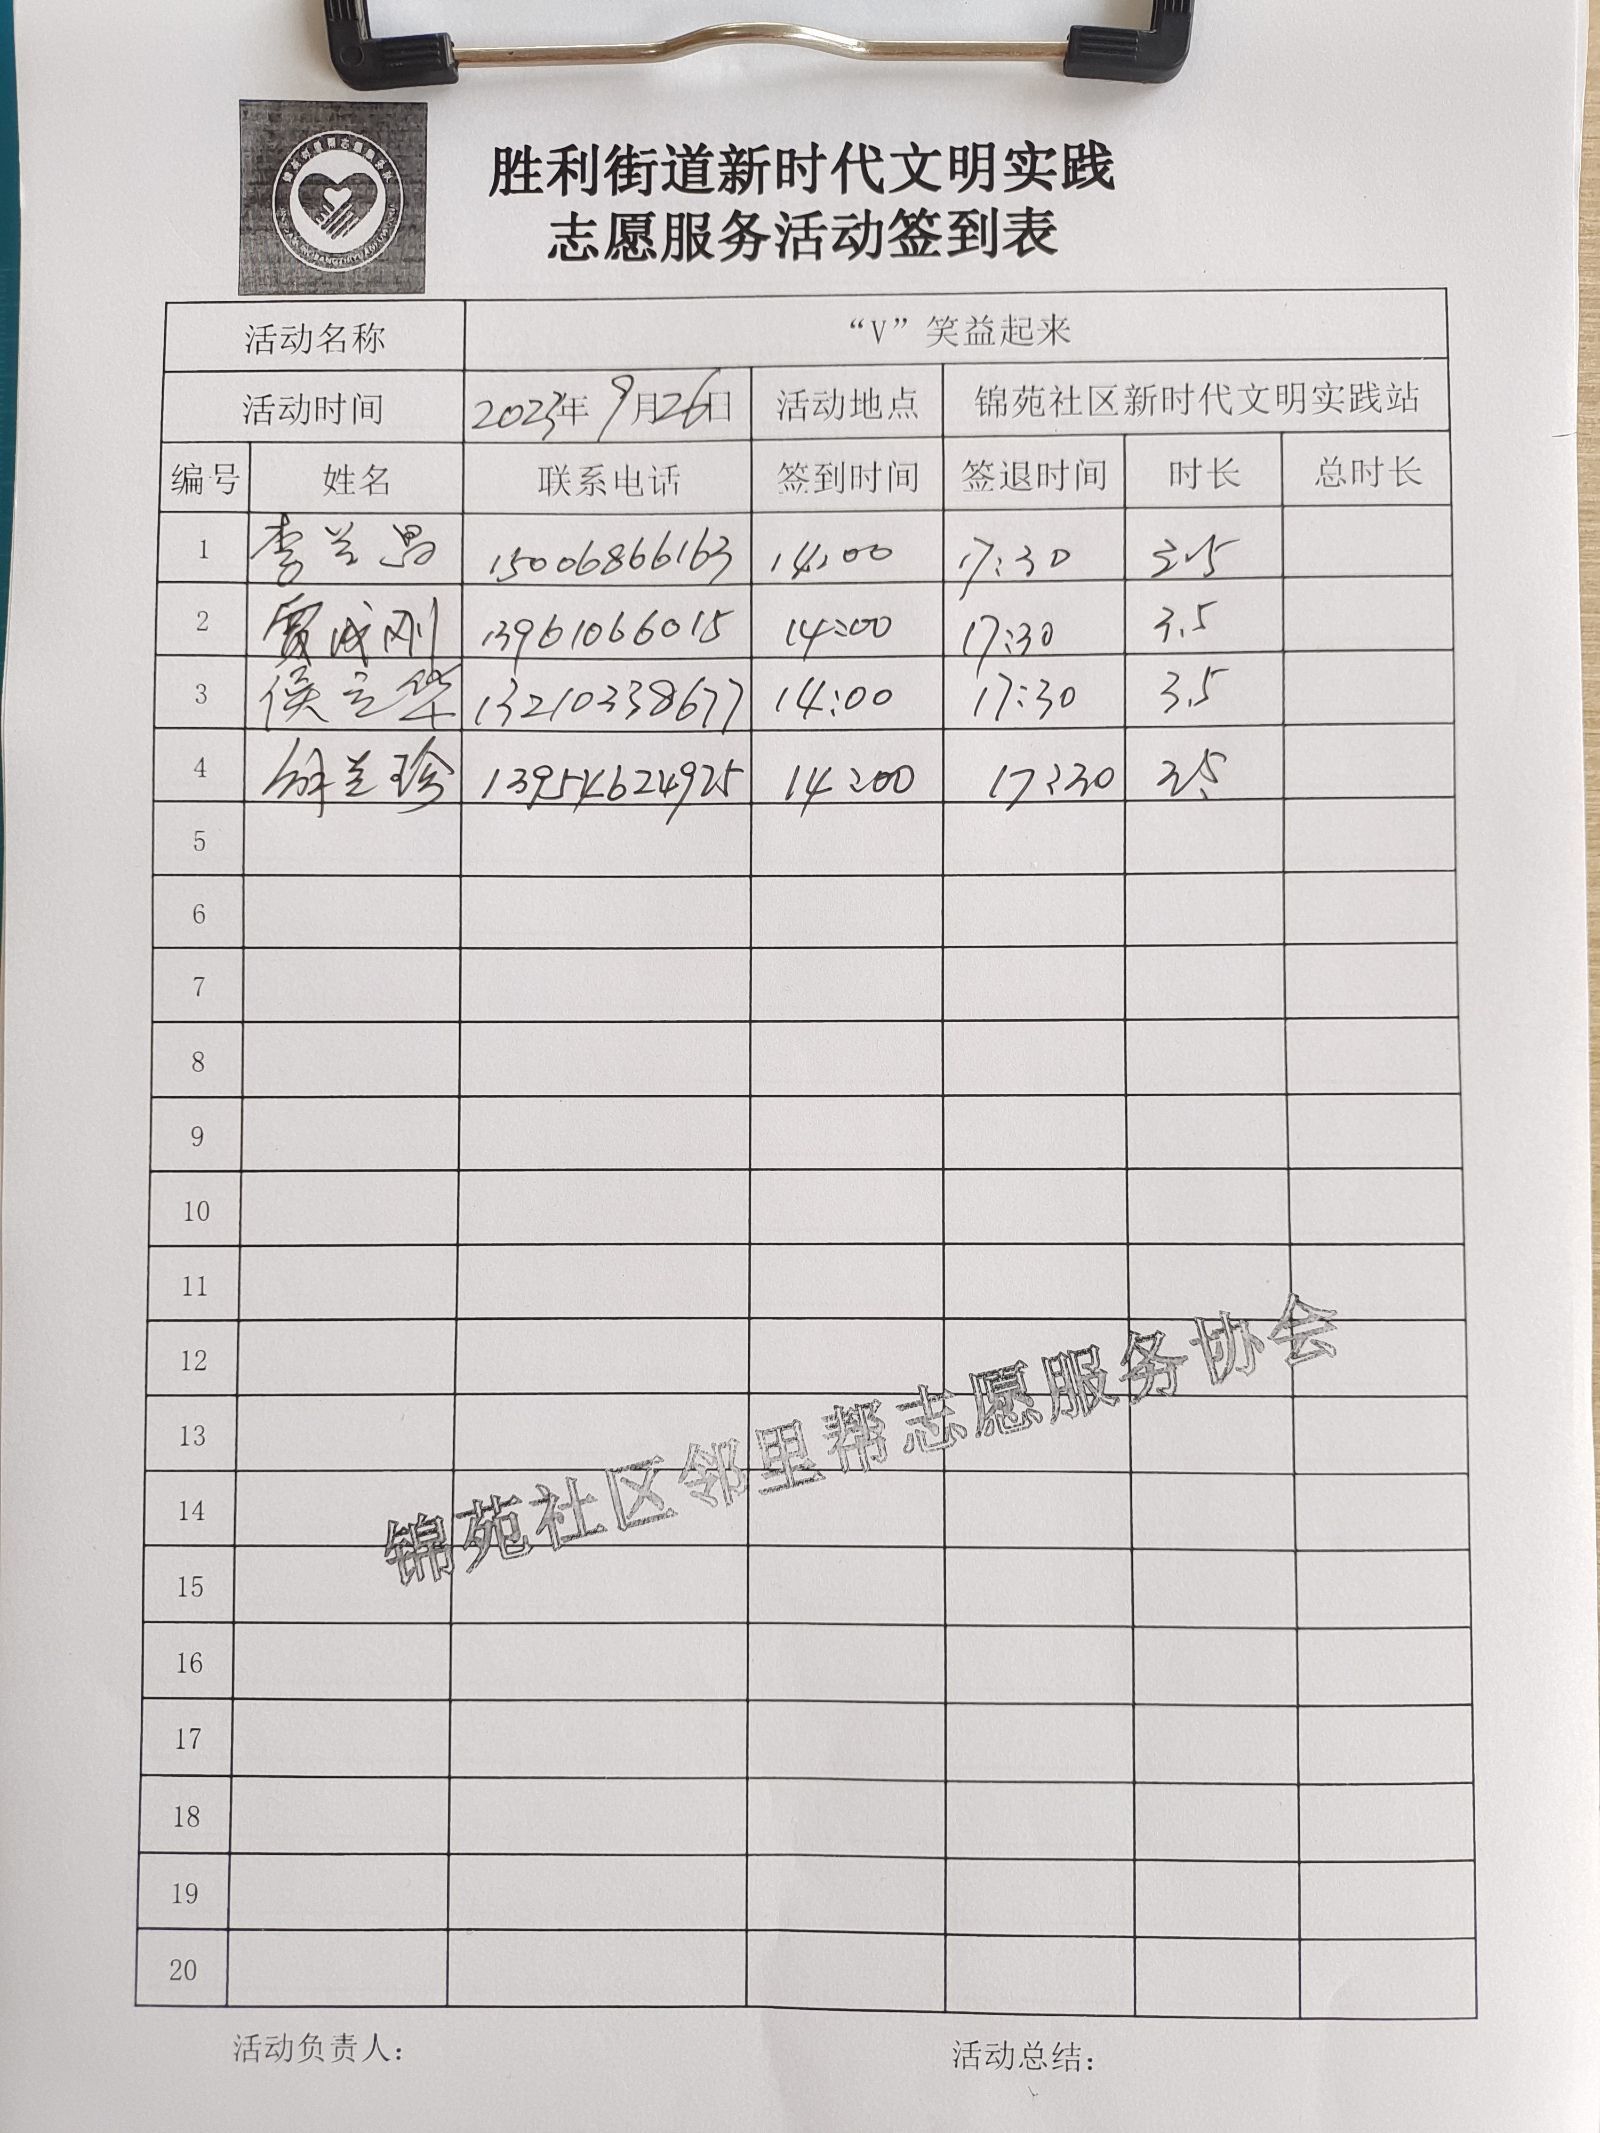 胜利街道新时代文明实践
志愿服务活动签到表
活动名称 “V”笑益起来
活动时间 2023年9月26日 活动地点 锦苑社区新时代文明实践站
编号 姓名 联系电话 签到时间 签退时间 时长 总时长
1 李兰昌 15006866163 14:00 17:30 3.5
2 贾成刚 13961066015 14:00 17:30 3.5
3 侯立华 13210338677 14:00 17:30 3.5
4 兰珍 13954624925 14:00 17:30 3.5
5
6
7
8
9
10
11
12
13
14
15
16
17
18
19
20
锦苑社区邻里帮志愿服务协会
活动负责人： 活动总结：